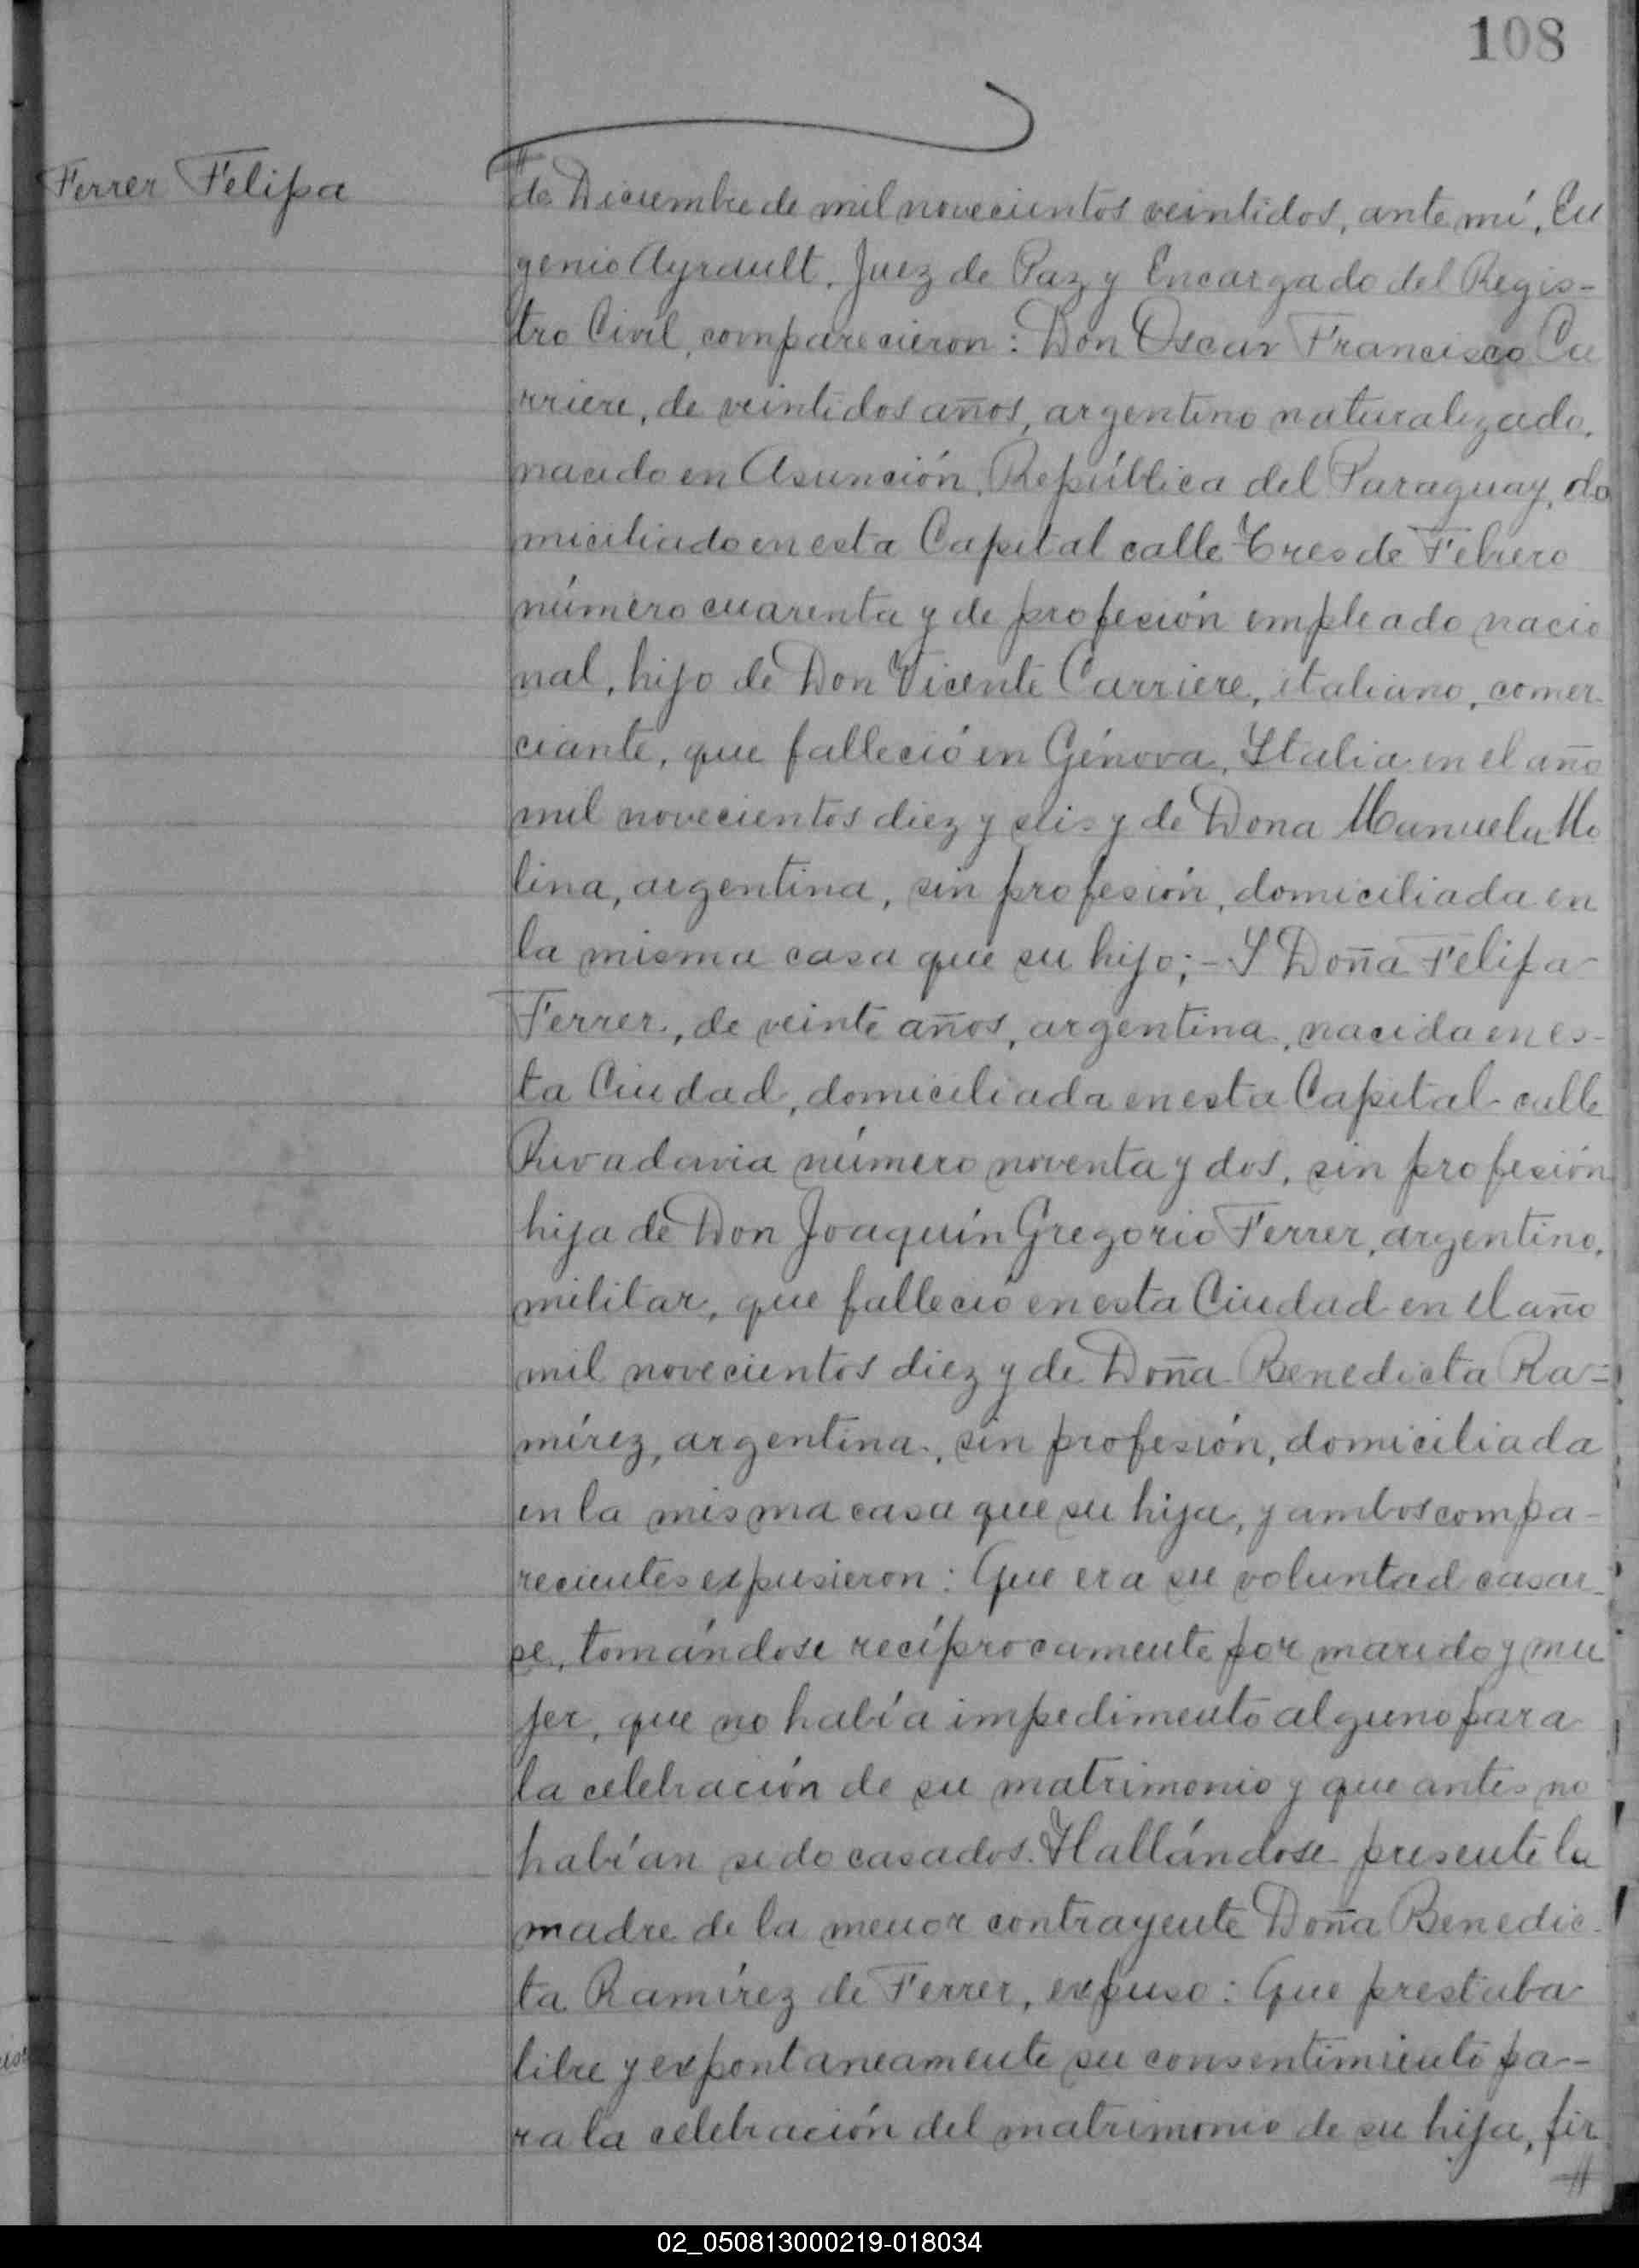 108
Ferrer Felipa
# de Diciembre de mil novecientos veintidos, ante mí, Eu
genio Ayrault, Juez de Paz y Encargado del Regis-
tro Civil, comparecieron: Don Oscar Francisco Ca
rriere, de veintidos años, argentino naturalizado,
nacido en Asunción, República del Paraguay, do
miciliado en esta Capital calle Tres de Febrero
número cuarenta y de profesión empleado nacio
nal, hijo de Don Vicente Carriere, italiano, comer-
ciante, que falleció en Génova, Italia en el año
mil novecientos diez y seis y de Dona Manuela Mo
lina, argentina, sin profesión, domiciliada en
la misma casa que su hijo;- Y Doña Felipa
Ferrer, de veinte años, argentina, nacida en es-
ta Ciudad, domiciliada en esta Capital calle
Rivadavia número noventa y dos, sin profesión
hija de Don Joaquín Gregorio Ferrer, argentino,
militar, que falleció en esta Ciudad en el año
mil novecientos diez y de Doña Benedicta Ra=
mírez, argentina, sin profesión, domiciliada
en la misma casa que su hija, y ambos compa-
recientes expusieron: Que era su voluntad casar-
se, tomándose recíprocamente por marido y mu
jer, que no había impedimento alguno para
la celebración de su matrimonio y que antes no
habían sido casados. Hallándose presente la
madre de la menor contrayente Doña Benedic-
ta Ramírez de Ferrer, expuso: Que prestaba
libre y expontaneamente su consentimiento pa-
ra la celebración del matrimonio de su hija, fir
#
02_050813000219-018034